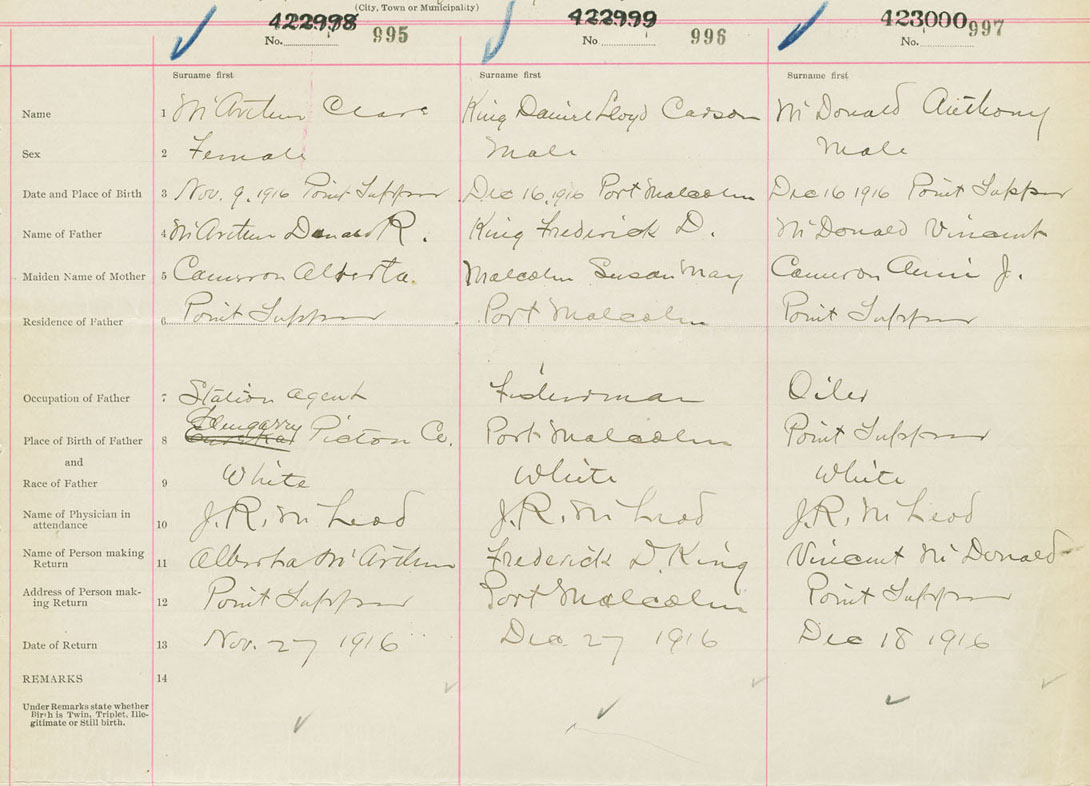 (City, Town or Municipality)
422998 422999 423000
No. 995 No 996 No. 997
Surname first Surname first Surname first
Name 1 McArthur Clare King Daniel Lloyd Carson McDonald Anthony
Sex 2 Female Male Male
Date and Place of Birth 3 Nov. 9, 1916 Point Tupper Dec 16, 1916 Port Malcolm Dec 16 1916 Point Tupper
Name of Father 4 McArthur Donald R. King Frederick D. McDonald Vincent
Maiden Name of Mother 5 Cameron Alberta. Malcolm Susan May Cameron Annie J.
Residence of Father 6 Point Tupper Port Malcolm Point Tupper
Occupation of Father 7 Station agent Fisherman Oiler
Glengarry
Place of Birth of Father 8 Pictou Co. Port Malcolm Point Tupper
and
Race of Father 9 White White White
Name of Physician in
attendance 10 J. R. McLeod J. R. McLeod J. R. McLeod
Name of Person making
Return 11 Alberta McArthur Frederick D. King Vincent McDonald
Address of Person mak-
ing Return 12 Point Tupper Port Malcolm Point Tupper
Date of Return 13 Nov. 27 1916 Dec 27 1916 Dec 18 1916
REMARKS 14
Under Remarks state whether
Birth is Twin, Triplet, Ille-
gitimate or Still birth.